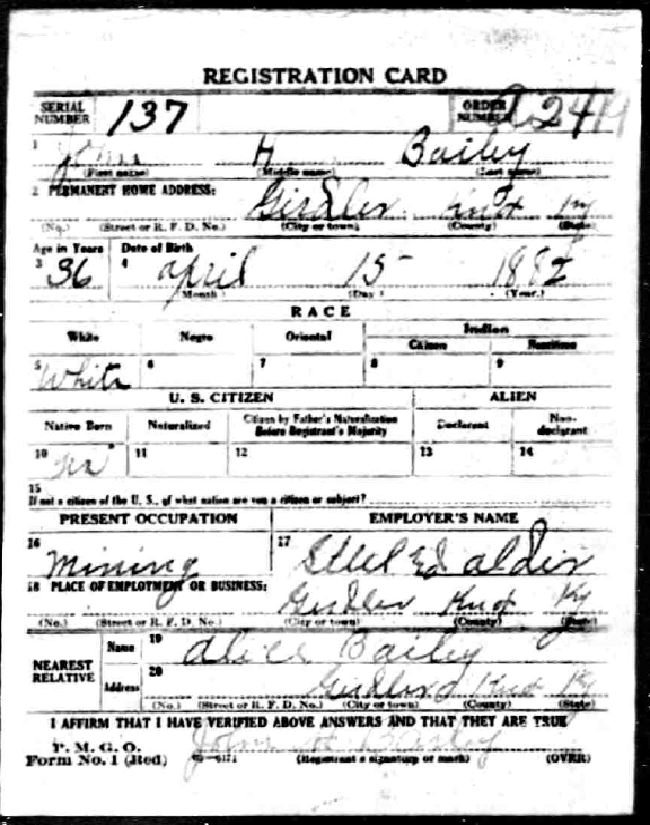 REGISTRATION CARD
SERIAL NUMBER 137 ORDER NUMBER
1 John H Bailey
(First name) (Middle name) (Last name)
2 PERMANENT HOME ADDRESS: Girdler Knox Ky
(No.) (Street or R. F. D. No.) (City or town) (County) (State)
Age in Years Date of Birth
3 36 4 April 15 1882
(Month) (Day) (Year.)
RACE
White Negro Oriental Indian
Citizen Noncitizen
5 White 6 7 8 9
U. S. CITIZEN ALIEN
Native Born Naturalized Citizen by Father's Naturalization Before Registrant's Majority Declarant Non-declarant
10 11 12 13 14
15
If not a citizen of the U. S., of what nation are you a citizen or subject?
PRESENT OCCUPATION EMPLOYER'S NAME
16 Mining 17
18 PLACE OF EMPLOYMENT OR BUSINESS:
Girdler Knox Ky
(No.) (Street or R. F. D. No.) (City or town) (County) (State)
NEAREST RELATIVE Name 19 Alice Bailey
Address 20 Knox Ky
(No.) (Street or R. F. D. No.) (City or town) (County) (State)
I AFFIRM THAT I HAVE VERIFIED ABOVE ANSWERS AND THAT THEY ARE TRUE
P. M. G. O.
Form No. 1 (Red) John H Bailey
(Registrant's signature or mark) (OVER)